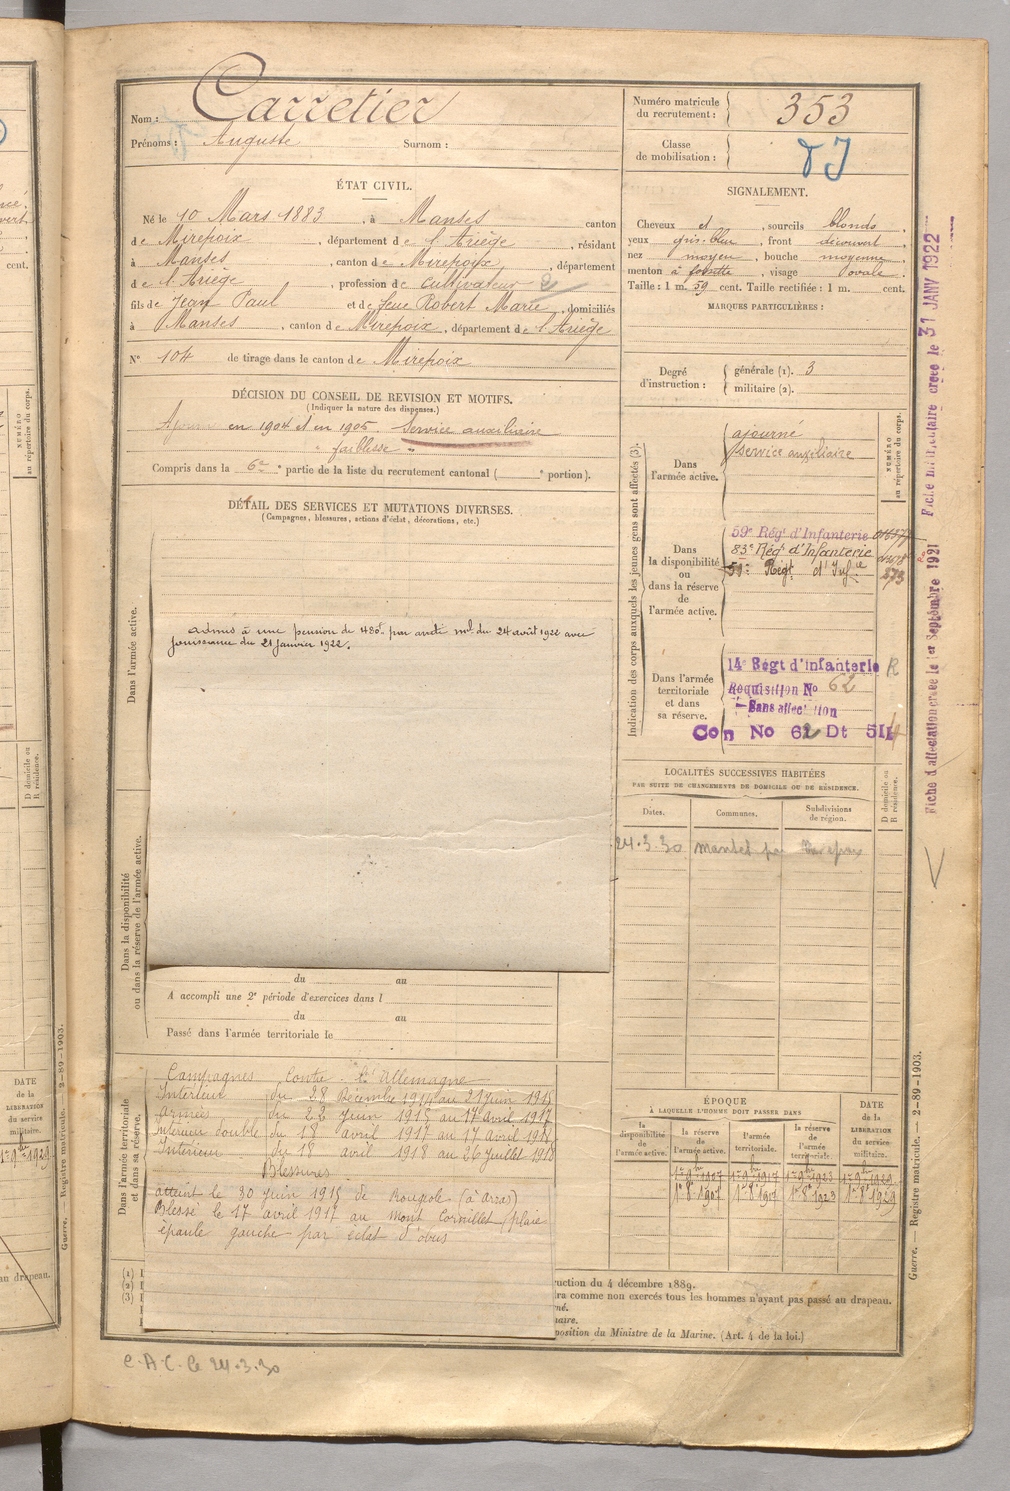 Nom : Carretier
Prénoms : Auguste Surnom :
Numéro matricule du recrutement : 353
Classe de mobilisation :
ÉTAT CIVIL.
Né le 10 Mars 1883, à Manses canton
de Mirepoix, département de l'Ariège, résidant
à Manses, canton de Mirepoix, département
de l'Ariège, profession de cultivateur
fils de Jean Paul et de feue Robert Marie, domiciliés
à Manses, canton de Mirepoix, département de l'Ariège
N° 104 de tirage dans le canton de Mirepoix
SIGNALEMENT.
Cheveux et, sourcils blonds,
yeux gris-bleu, front découvert,
nez moyen, bouche moyenne,
menton à fossette, visage ovale.
Taille : 1 m. 59 cent. Taille rectifiée : 1 m. cent.
MARQUES PARTICULIÈRES :
Degré d'instruction : générale (1). 3
militaire (2).
DÉCISION DU CONSEIL DE REVISION ET MOTIFS.
(Indiquer la nature des dispenses.)
en 1904 et en 1905. Service auxiliaire
faiblesse
Compris dans la 6e partie de la liste du recrutement cantonal ( e portion).
DÉTAIL DES SERVICES ET MUTATIONS DIVERSES.
(Campagnes, blessures, actions d'éclat, décorations, etc.)
Dans l'armée active.
Admis à une pension de 480f par arrêté ml du 24 août 1922 avec
jouissance du 21 janvier 1922.
Dans la disponibilité
ou dans la réserve de l'armée active.
du au
A accompli une 2e période d'exercices dans l
du au
Passé dans l'armée territoriale le
Dans l'armée territoriale
et dans sa réserve.
Campagnes Contre l'Allemagne
Intérieur du 28 Décembre 1914 au 21 juin 1915
Armées du 22 juin 1915 au 17 avril 1917
Intérieur double du 18 avril 1917 au 17 avril 1918
Intérieur du 18 avril 1918 au 26 juillet 1918
Blessures
atteint le 30 juin 1915 de Rougeole (à Arras)
Blessé le 17 avril 1917 au mont Cornillet, plaie
épaule gauche par éclat d'obus
Indication des corps auxquels les jeunes gens sont affectés (3).
NUMÉRO
au répertoire du corps.
Dans l'armée active.
ajourné
Service auxiliaire
Dans la disponibilité ou dans la réserve de l'armée active.
59e Régt d'Infanterie
83e Régt d'Infanterie
59e Régt d'Infie
273
Dans l'armée territoriale et dans sa réserve.
14e Régt d'infanterie R
Réquisition No 62
Sans affectation
Con No 62 Dt
LOCALITÉS SUCCESSIVES HABITÉES
PAR SUITE DE CHANGEMENTS DE DOMICILE OU DE RÉSIDENCE.
Dates. Communes. Subdivisions de région. D domicile ou R résidence.
24.3.30
ÉPOQUE
À LAQUELLE L'HOMME DOIT PASSER DANS
la disponibilité de l'armée active. la réserve de l'armée active. l'armée territoriale. la réserve de l'armée territoriale. DATE de la LIBÉRATION du service militaire.
1er 9bre 1907 1er 9bre 1917 1er 9bre 1923 1er 9bre 1929
1er 8bre 1907 1er 8bre 1917 1er 8bre 1923 1er 8bre 1929
(1)
(2)
(3)
ruction du 4 décembre 1889.
ra comme non exercés tous les hommes n'ayant pas passé au drapeau.
né.
naire.
position du Ministre de la Marine. (Art. 4 de la loi.)
C.A.C. le 24.3.30
Guerre. — Registre matricule. — 2-89-1903.
Fiche d'affectation créée le 1er Septembre 1921
créée le 31 JANV 1922
NUMÉRO
au répertoire du corps.
cent.
D domicile ou
R résidence.
DATE
de la
LIBÉRATION
du service
militaire.
Guerre. — Registre matricule. 2-89-1903.
au drapeau.